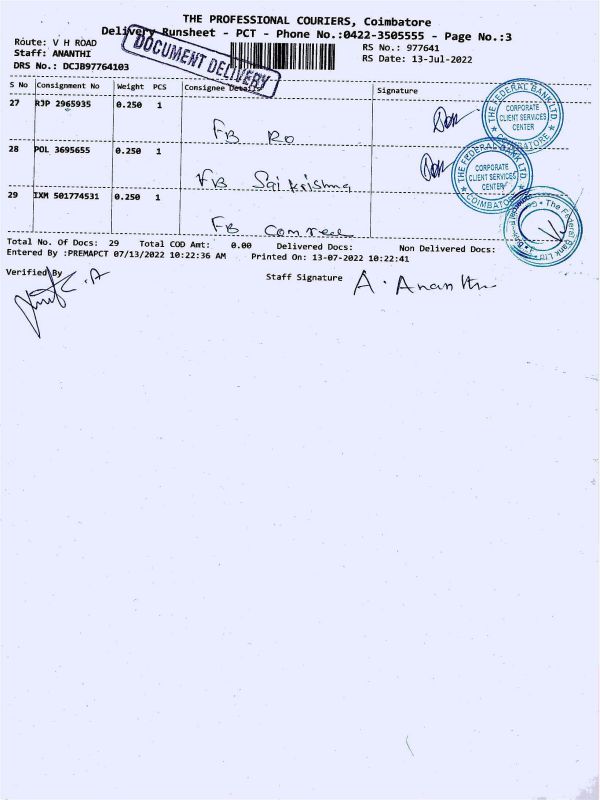 THE PROFESSIONAL COURIERS, Coimbatore
Delivery Runsheet - PCT - Phone No.:0422-3505555 - Page No.:3
Route: V H ROAD
RS No.: 977641
Staff: ANANTHI
RS Date: 13-Jul-2022
DRS No.: DCJB97764103
DOCUMENT DELIVERY
S No Consignment No Weight PCS Consignee Details Signature
27 RJP 2965935 0.250 1
FB RO
THE FEDERAL BANK LTD. CORPORATE CLIENT SERVICES CENTER COIMBATORE
28 POL 3695655 0.250 1
FB Sai Krishna
THE FEDERAL BANK LTD. CORPORATE CLIENT SERVICES CENTER COIMBATORE
29 IXM 501774531 0.250 1
FB
The Federal Bank Ltd
Total No. Of Docs: 29 Total COD Amt: 0.00 Delivered Docs: Non Delivered Docs:
Entered By :PREMAPCT 07/13/2022 10:22:36 AM Printed On: 13-07-2022 10:22:41
Verified By
Staff Signature A. Ananthi